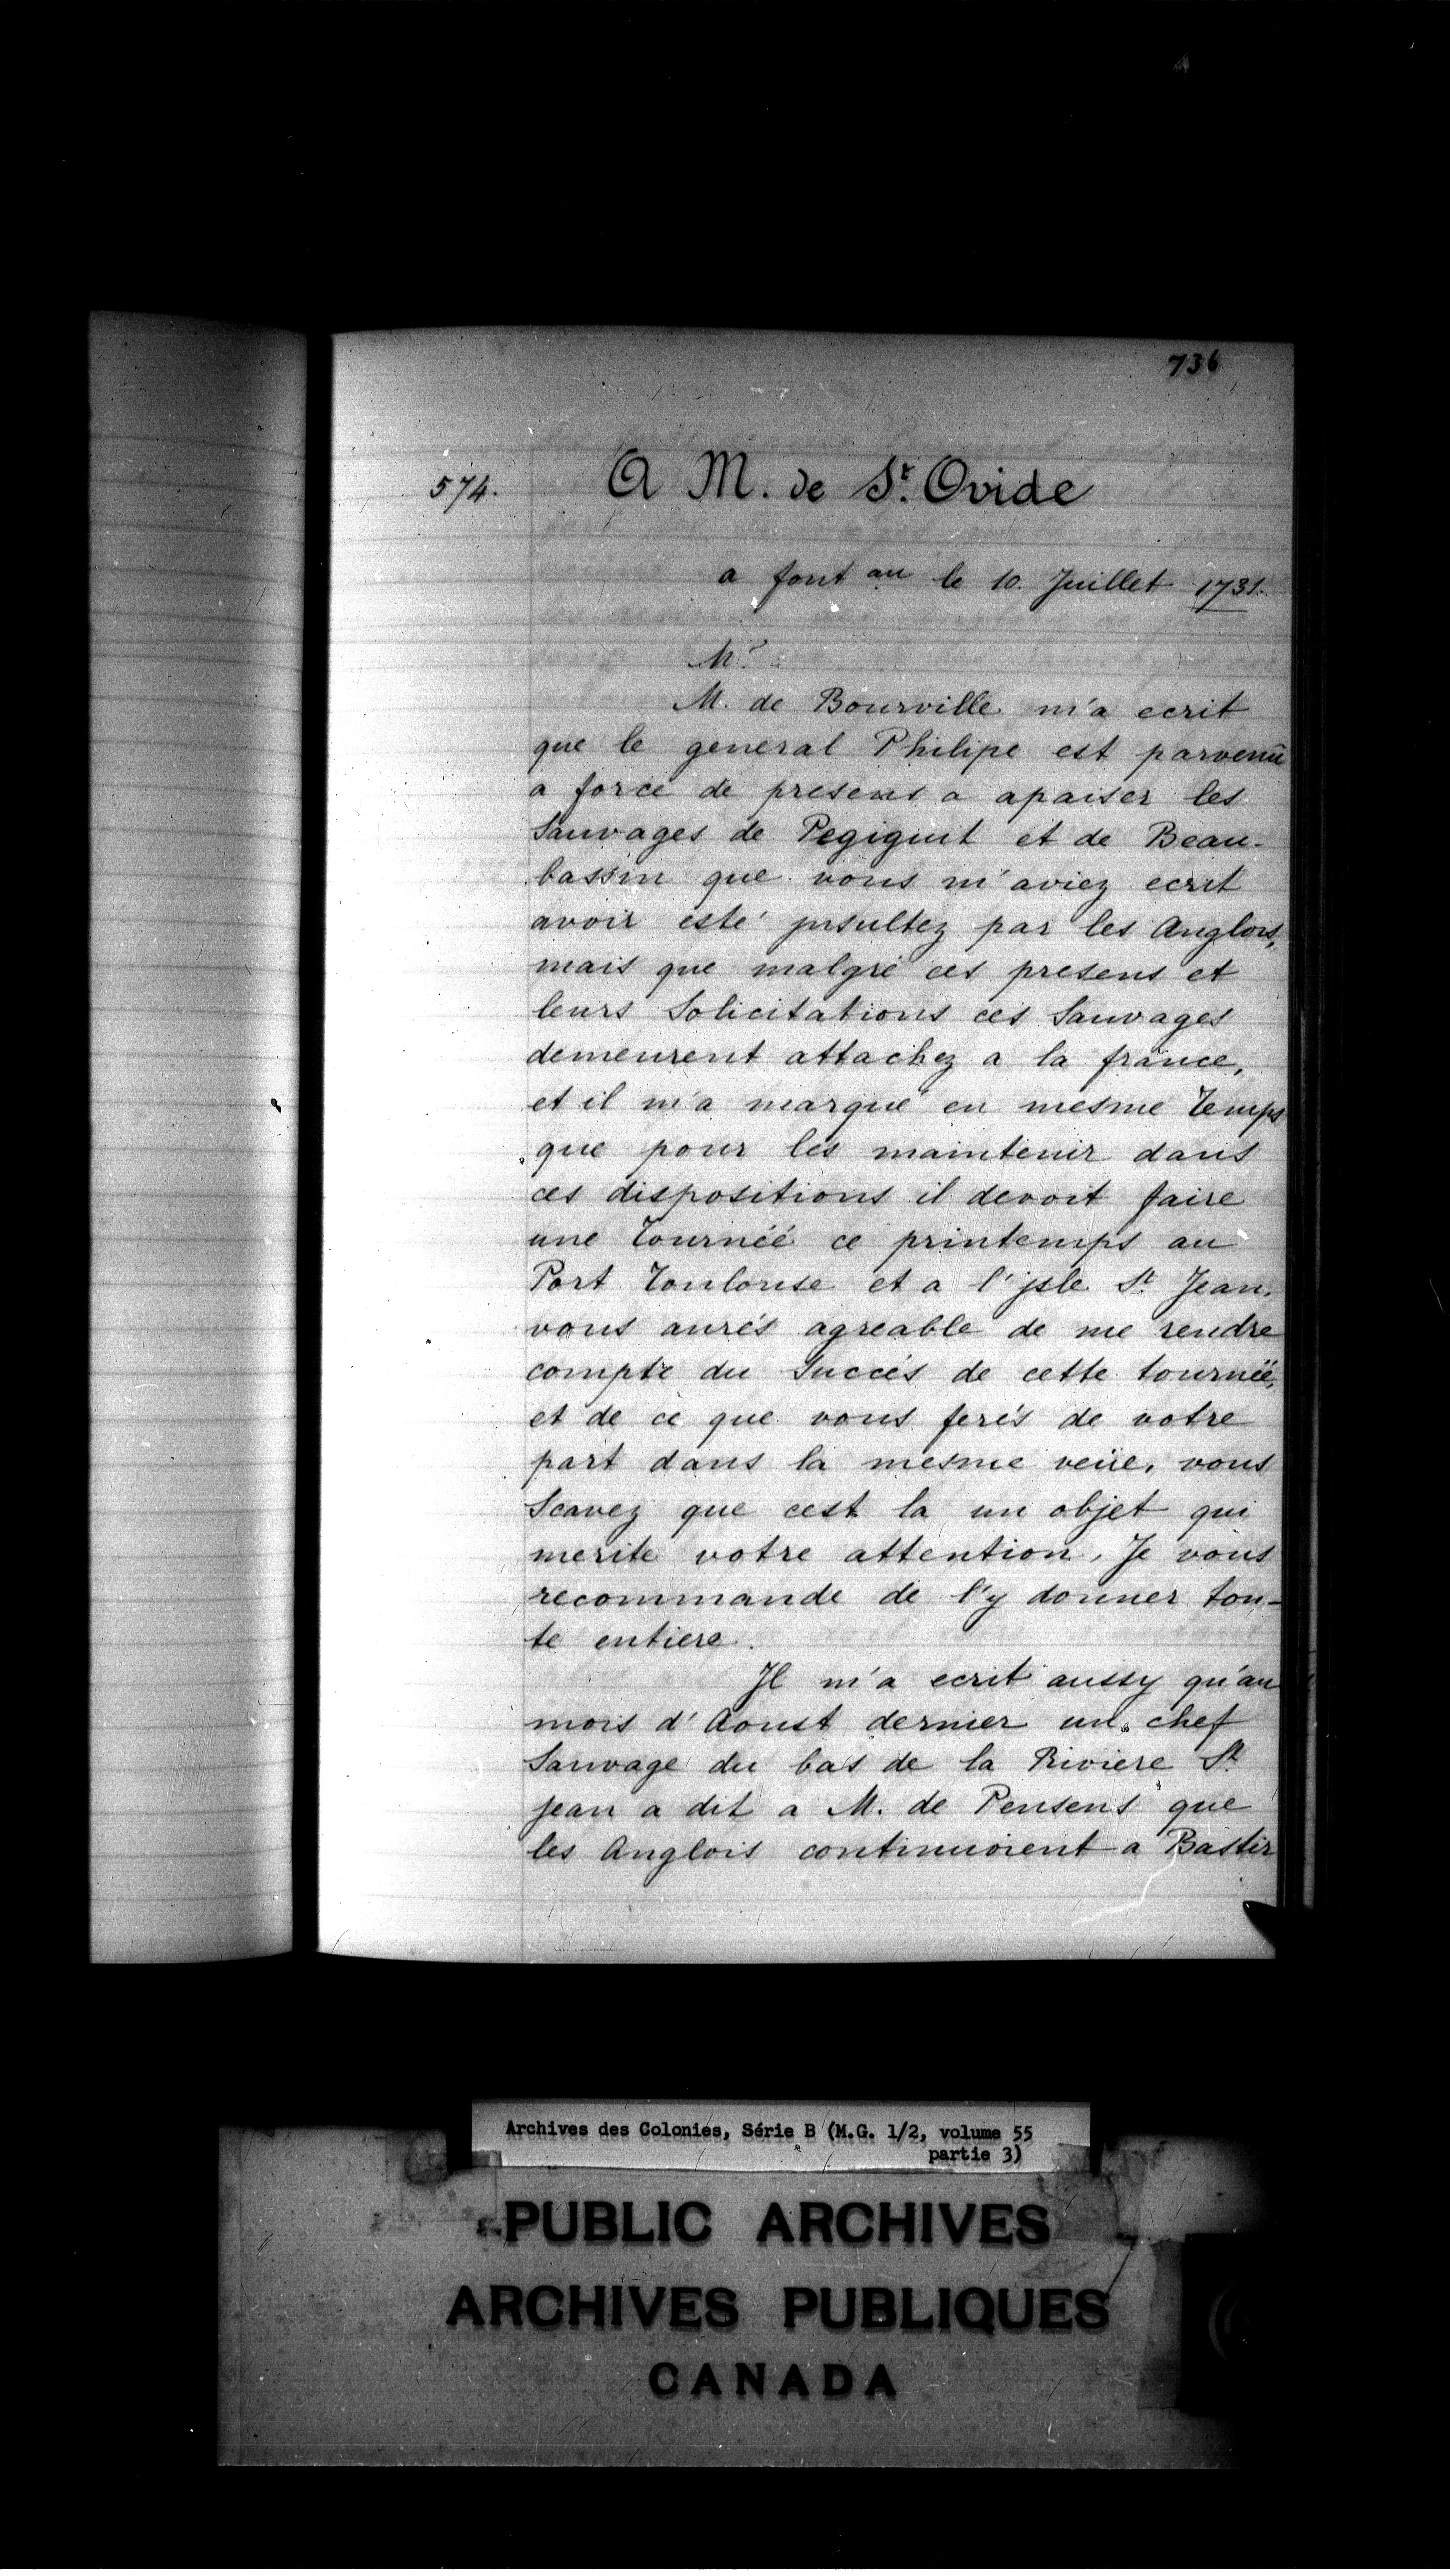 736
574. A M. de St. Ovide
a font au le 10. Juillet 1731.
Mr.
M. de Bourville m'a ecrit
que le general Philipe est parvenû
a force de presens a apaiser les
Sauvages de Pegiguit et de Beau-
bassin que vous m'aviez ecrit
avoir esté jnsultez par les Anglois,
mais que malgré ces presens et
leurs Solicitations ces Sauvages
demeurent attachez a la france,
et il m'a marqué en mesme Temps
que pour les maintenir dans
ces dispositions il devoit faire
une Tournéé ce printemps au
Port Toulouse et a l'jsle St. Jean.
vous aurés agreable de me rendre
compte du Succés de cette tournéé,
et de ce que vous ferés de votre
part dans la mesme veüe, vous
Scavez que cest la un objet qui
merite votre attention, Je vous
recommande de l'y donner tou-
te entiere.
Jl m'a ecrit aussy qu'au
mois d'Aoust dernier un chef
Sauvage du bas de la Riviere St.
jean a dit a M. de Pensens que
les Anglois continuoient a Bastir
Archives des Colonies, Série B (M.G. 1/2, volume 55
partie 3)
PUBLIC ARCHIVES
ARCHIVES PUBLIQUES
CANADA